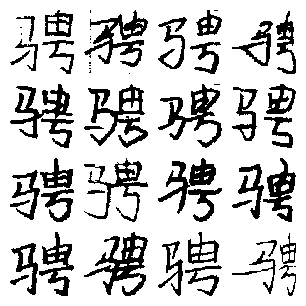 骋骋骋骋
骋骋骋骋
骋骋骋骋
骋骋骋骋